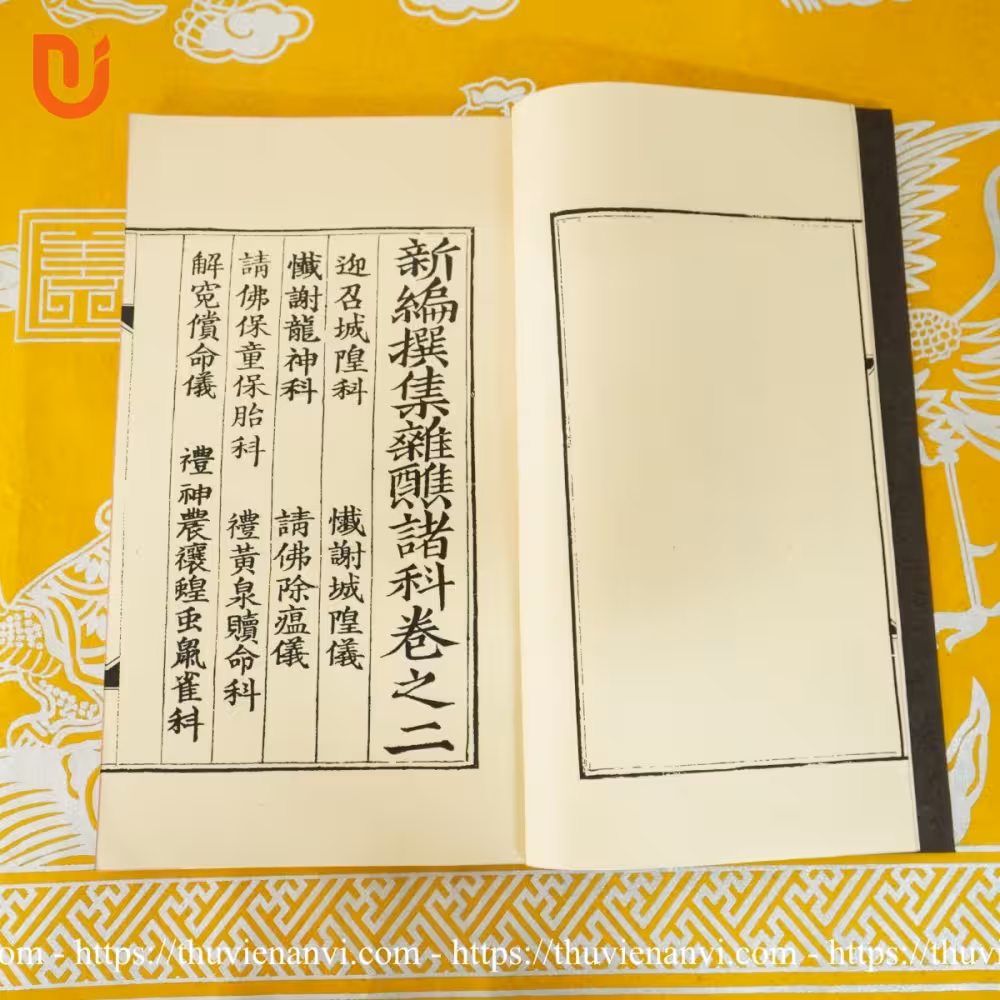 新編撰集雜醮諸科卷之二
迎召城隍科 懺謝城隍儀
懺謝龍神科 請佛除瘟儀
請佛保童保胎科 禮黃泉贖命科
解宽償命儀 禮神農禳蝗虫鼠雀科
.com - https://thuvienanvi.com - https://thuvienanvi.com - https://thuv